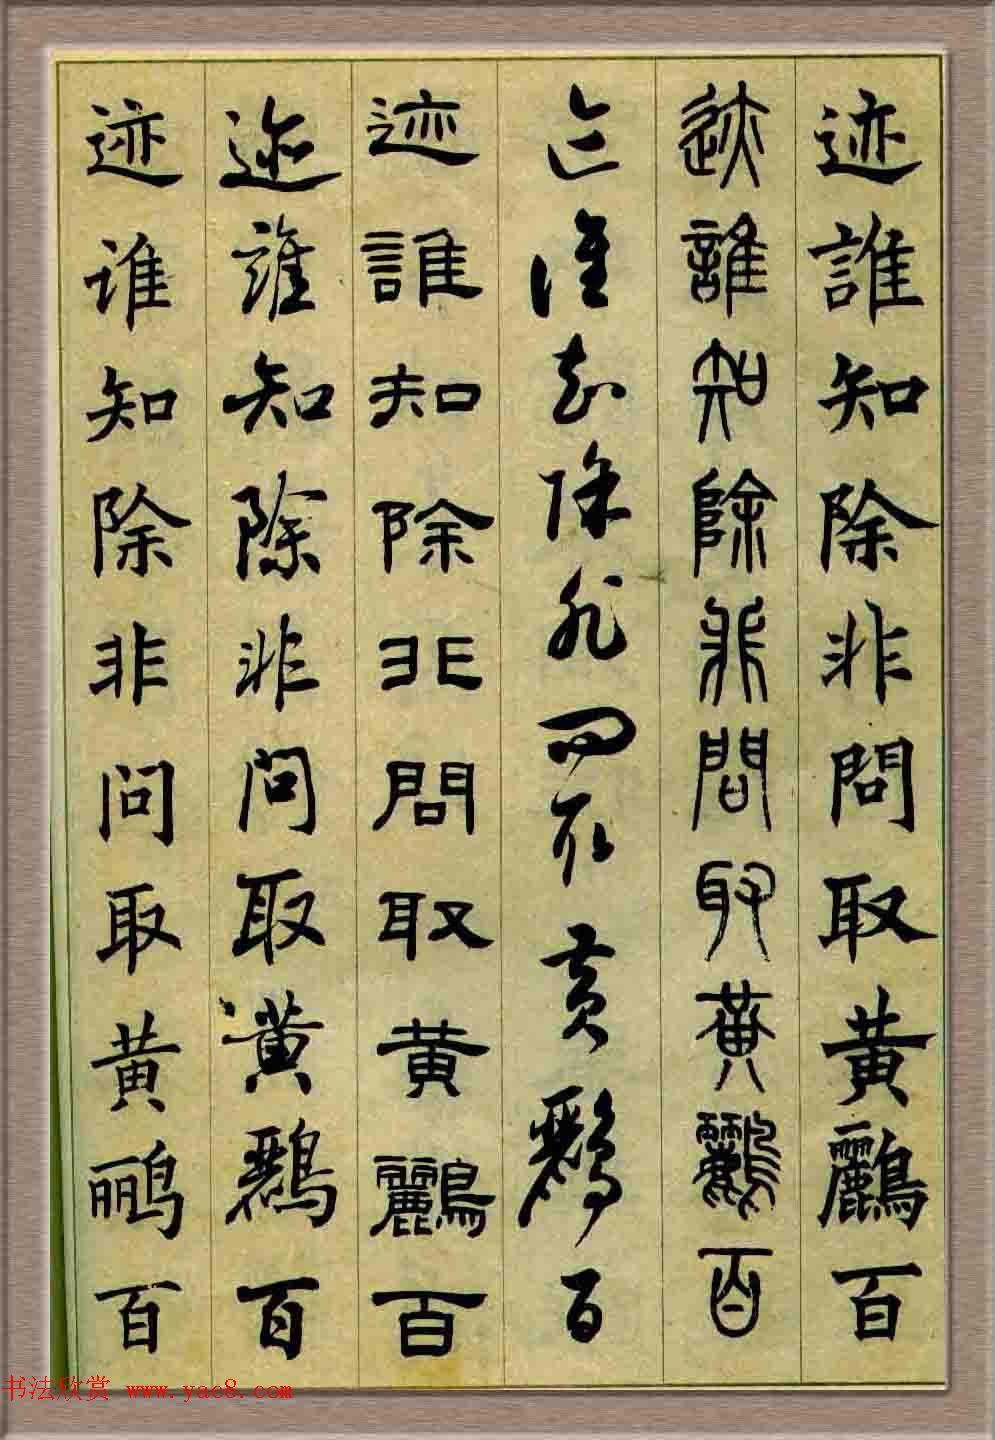 迹誰知除非問取黄鸝百
迹誰知除非問取黄鸝百
迹誰知除非問取黄鸝百
迹誰知除非問取黄鸝百
迹誰知除非问取黄鸝百
迹谁知除非问取黄鹂百
书法欣赏 www.yac8.com